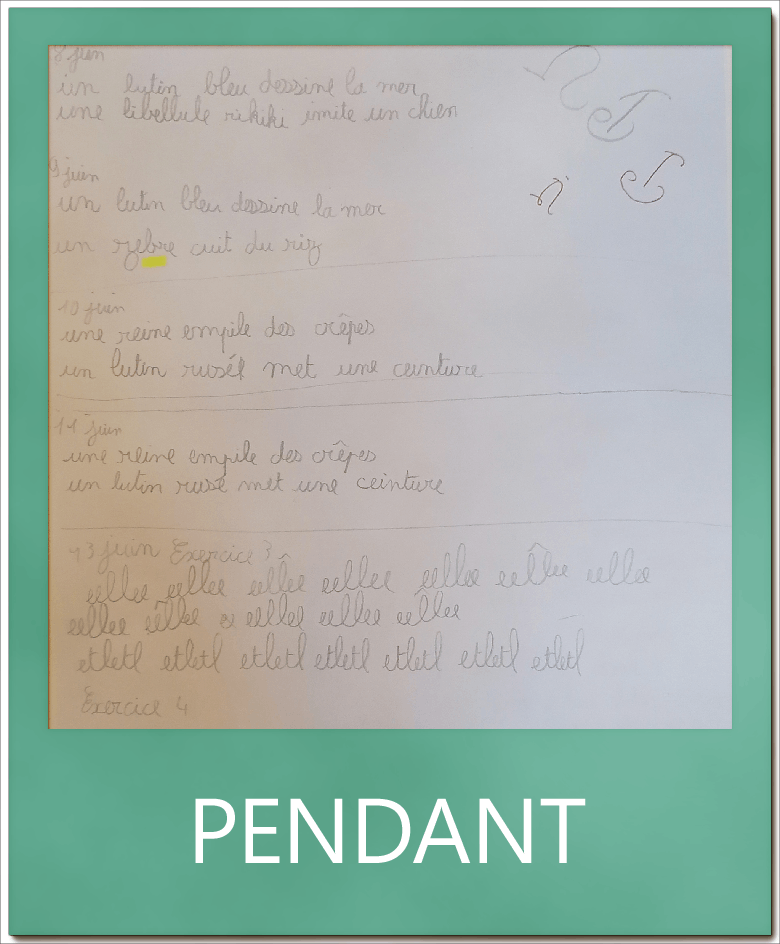 8 juin
un lutin bleu dessine la mer
une libellule rikiki imite un chien
9 juin
un lutin bleu dessine la mer
un zèbre cuit du riz
10 juin
une reine empile des crêpes
un lutin rusé met une ceinture
11 juin
une reine empile des crêpes
un lutin rusé met une ceinture
13 juin Exercice 3
eellee eellee eellee eellee eellee eellee eellee
eellee eellee eellee eellee eellee
etletl etletl etletl etletl etletl etletl etletl
Exercice 4
PENDANT